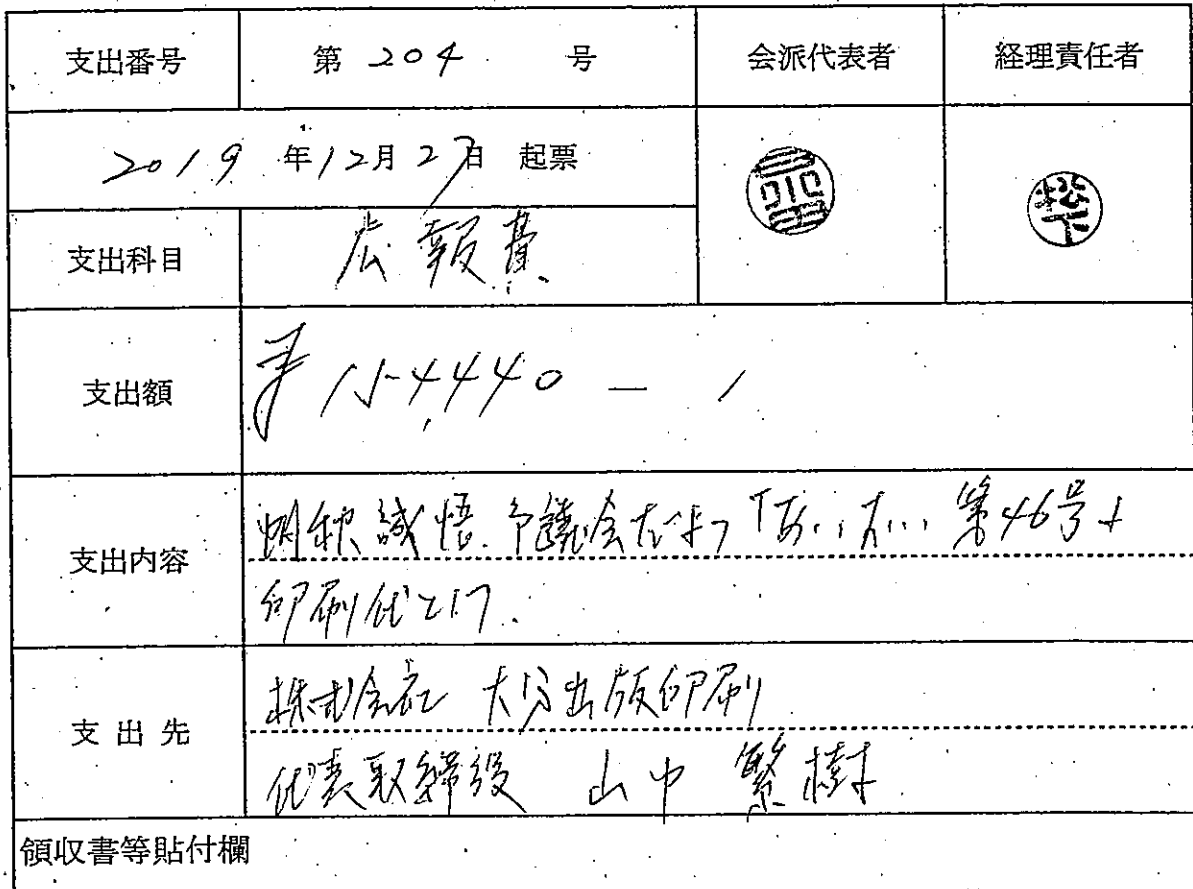 支出番号 第 204 号 会派代表者 経理責任者
2019 年12月27日 起票
支出科目 広報費
支出額 ¥154,440 —
支出内容 議会だより 第46号
印刷代として.
支出先 株式会社 大分出版印刷
代表取締役 山中 繁樹
領収書等貼付欄